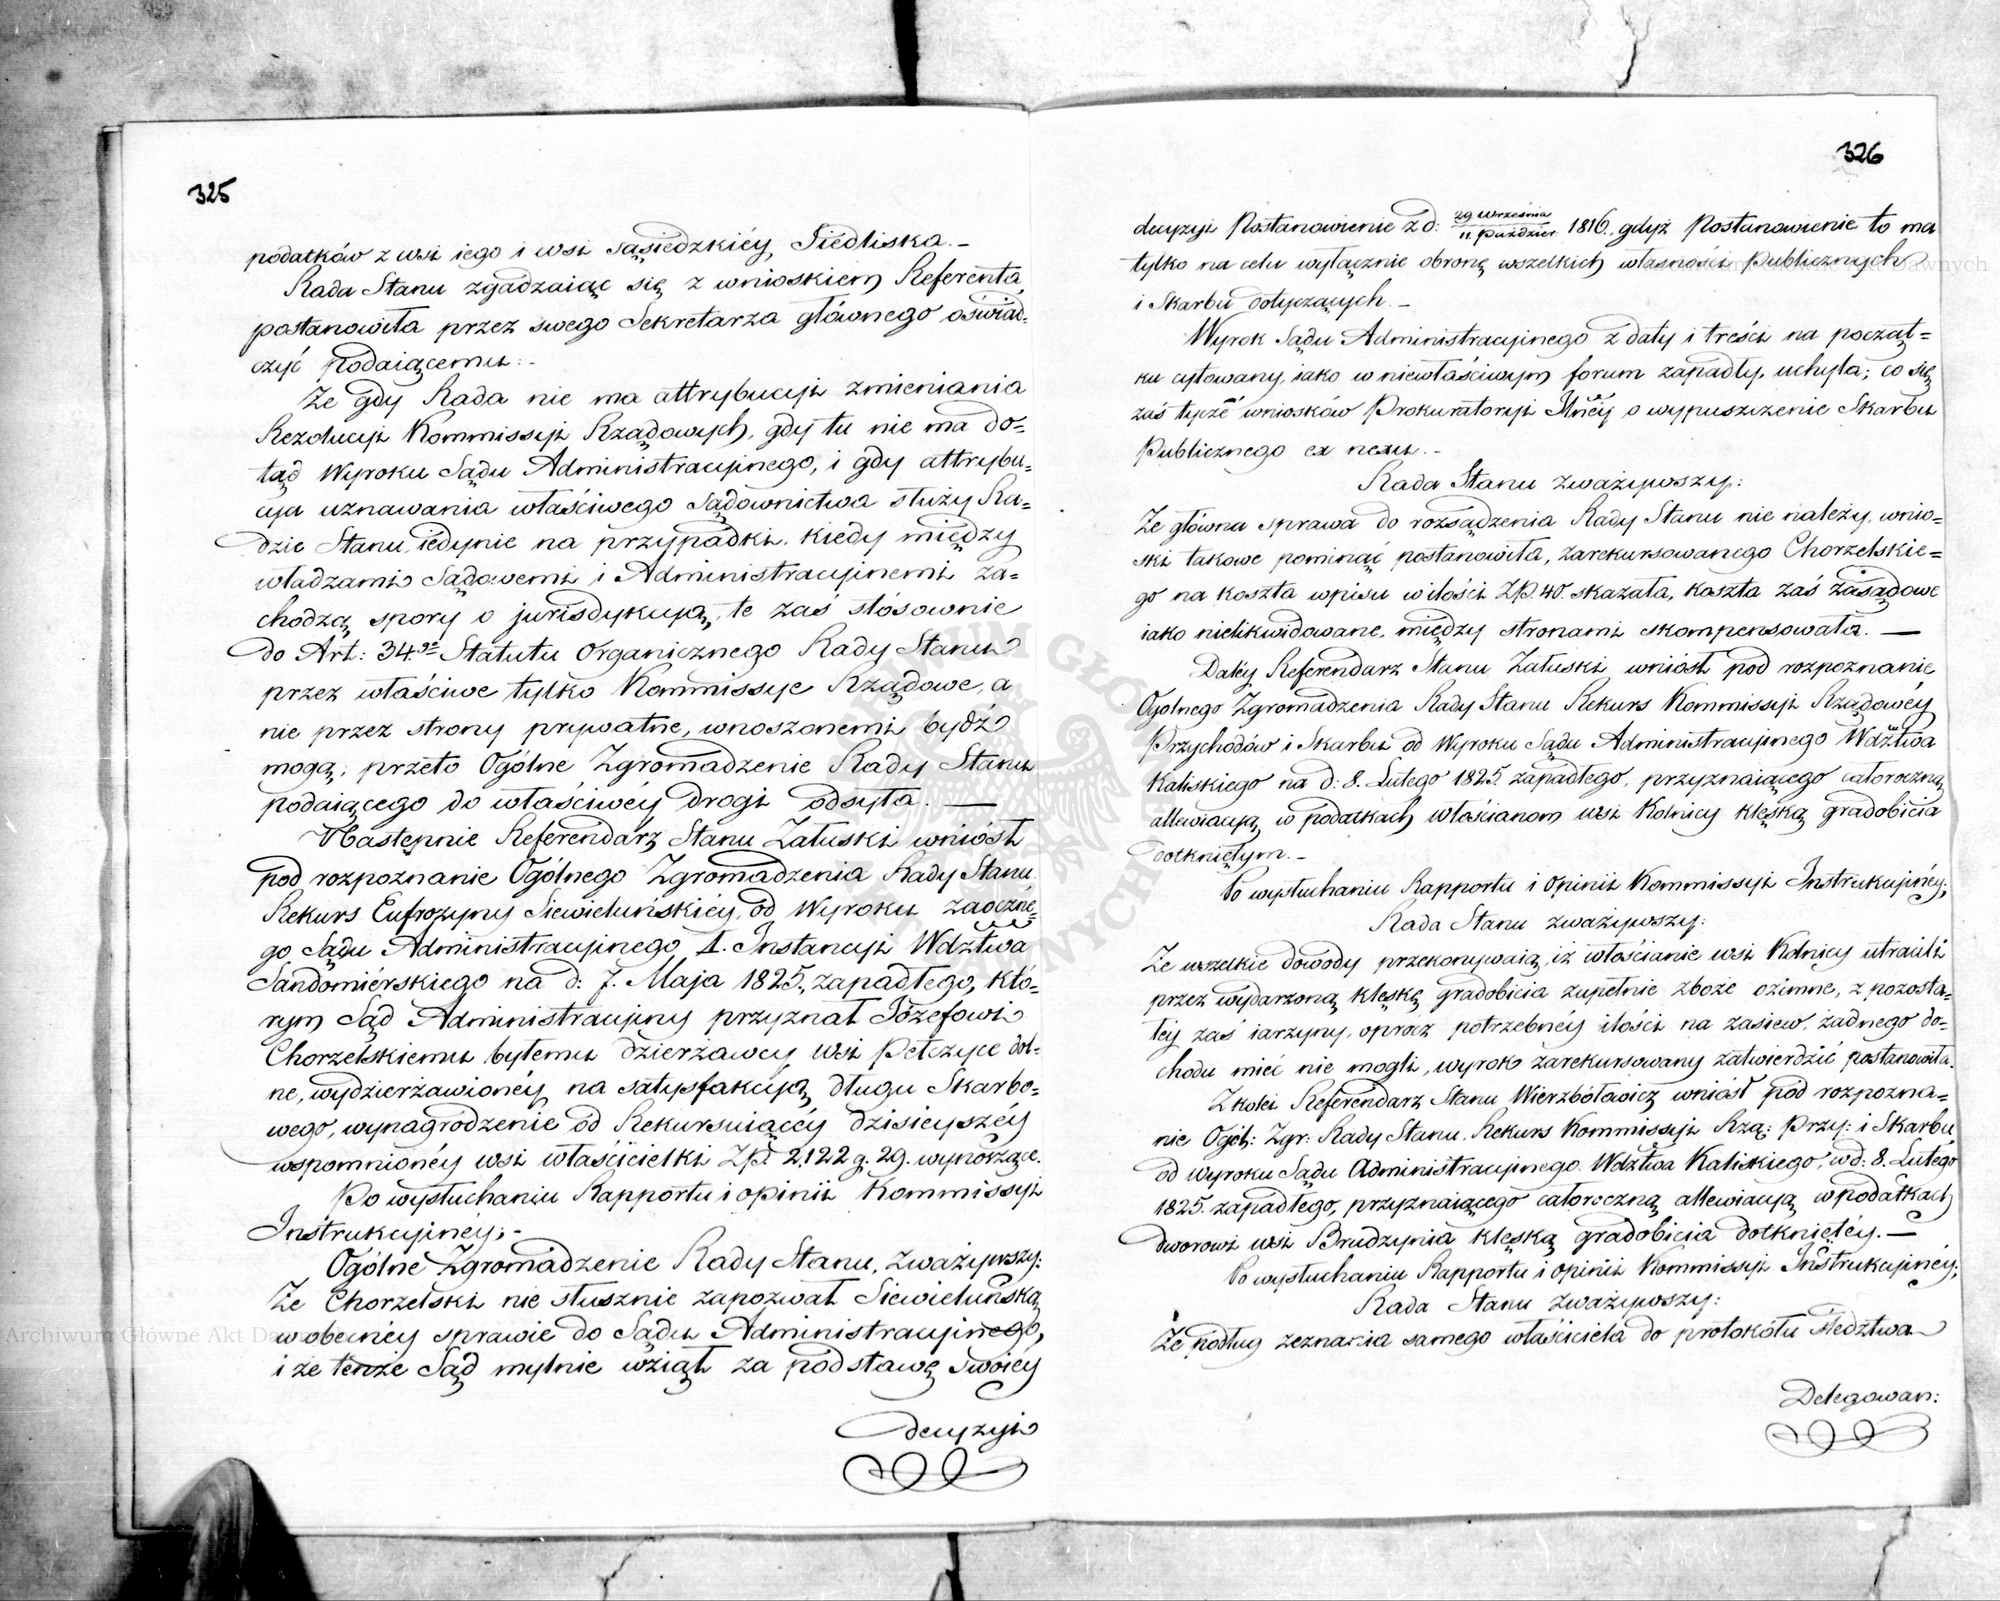 325
podatków z wsi iego i wsi sąsiedzkiéy Siedliska.-
Rada Stanu zgadzaiąc się z wnioskiem Referenta,
postanowiła przez swego Sekretarza głównego oświad=
czyć podaiącemu:-
Że gdy Rada nie ma attrybucyi zmieniania
Rezolucyi Kommissyi Rządowych, gdy tu nie ma do=
tąd Wyroku Sądu Administracyinego, i gdy attrybu=
cya uznawania właściwego Sądownictwa służy Ra=
dzie Stanu iedynie na przypadki, kiedy między
władzami Sądowemi i Administracyinemi za=
chodzą spory o jurisdykcyią, te zaś stósownie
do Art: 34.go Statutu Organicznego Rady Stanu
przez właściwe tylko Kommissye Rządowe, a
nie przez strony prywatne, wnoszonemi bydź
mogą; przeto Ogólne Zgromadzenie Rady Stanu
podaiącego do właściwéy drogi odsyła. —
Następnie Referendarz Stanu Załuski wniósł
pod rozpoznanie Ogólnego Zgromadzenia Rady Stanu
Rekurs Eufrozyny Siewieluńskiéy, od Wyroku zaoczne=
go Sądu Administracyinego I. Instancyi Wdztwa
Sandomiérskiego na d: 7. Maja 1825. zapadłego, któ=
rym Sąd Administracyiny przyznał Józefowi
Chorzelskiemu byłemu dzierżawcy wsi Pełczyce dol=
ne, wydzierżawionéy na satysfakcyią długu Skarbo=
wego, wynagrodzenie od Rekursuiącéy dzisieyszéy
wspomnionéy wsi właścicielki Zł. 2,122 g. 29. wynoszące.
Po wysłuchaniu Rapportu i opinii Kommissyi
Instrukcyinéy;-
Ogólne Zgromadzenie Rady Stanu, zważywszy:
Że Chorzelski nie słusznie zapozwał Siewieluńską
w obecnéy sprawie do Sądu Administracyinego,
i że tenże Sąd mylnie wziął za podstawę swoiéy
decyzyi
326
decyzyi Postanowienie z d: 29 Września / 11. Paździer. 1816., gdyż Postanowienie to ma
tylko na celu wyłącznie obronę wszelkich własności Publicznych
i Skarbu dotyczących.-
Wyrok Sądu Administracyinego z daty i treści na począt=
ku cytowany, iako w niewłaściwym forum zapadły, uchyla; co się
zaś tycze wniosków Prokuratoryi o wypuszczenie Skarbu
Publicznego ex nexu.-
Rada Stanu zważywszy:
Że główna sprawa do rozsądzenia Rady Stanu nie należy, wnio=
ski takowe pominąć postanowiła, zarekursowanego Chorzelskie=
go na koszta wpisu w ilości Zł. 40. skazała, koszta zaś zasądowe
iako nielikwidowane, między stronami skompensowała. —
Daléy Referendarz Stanu Załuski wniósł pod rozpoznanie
Ogólnego Zgromadzenia Rady Stanu Rekurs Kommissyi Rządowéy
Przychodów i Skarbu od Wyroku Sądu Administracyinego Wdztwa
Kaliskiego na d: 8. Lutego 1825. zapadłego, przyznaiącego całoroczną
allewiacyią w podatkach włościanom wsi Kolnicy klęską gradobicia
dotkniętym.-
Po wysłuchaniu Rapportu i opinii Kommissyi Instrukcyinéy;
Rada Stanu zważywszy:
Że wszelkie dowody przekonywaią, iż włościanie wsi Kolnicy utracili
przez wydarzoną klęskę gradobicia zupełnie zboże ozimne, z pozosta=
łéy zaś iarzyny, oprócz potrzebnéy ilości na zasiew, żadnego do=
chodu mieć nie mogli, wyrok zarekursowany zatwierdzić postanowiła.
Z kolei Referendarz Stanu Wierzbołowicz wniósł pod rozpozna=
nie Ogól: Zgr: Rady Stanu, Rekurs Kommissyi Rzą: Przy: i Skarbu
od wyroku Sądu Administracyinego Wdztwa Kaliskiego, w d: 8. Lutego
1825. zapadłego, przyznaiącego całoroczną allewiacyią w podatkach
dworowi wsi Brudzynia klęską gradobicia dotkniętéy. —
Po wysłuchaniu Rapportu i opinii Kommissyi Instrukcyinéy;
Rada Stanu zważywszy:
Że podług zeznania samego właściciela do protokółu śledztwa
Delegowan: